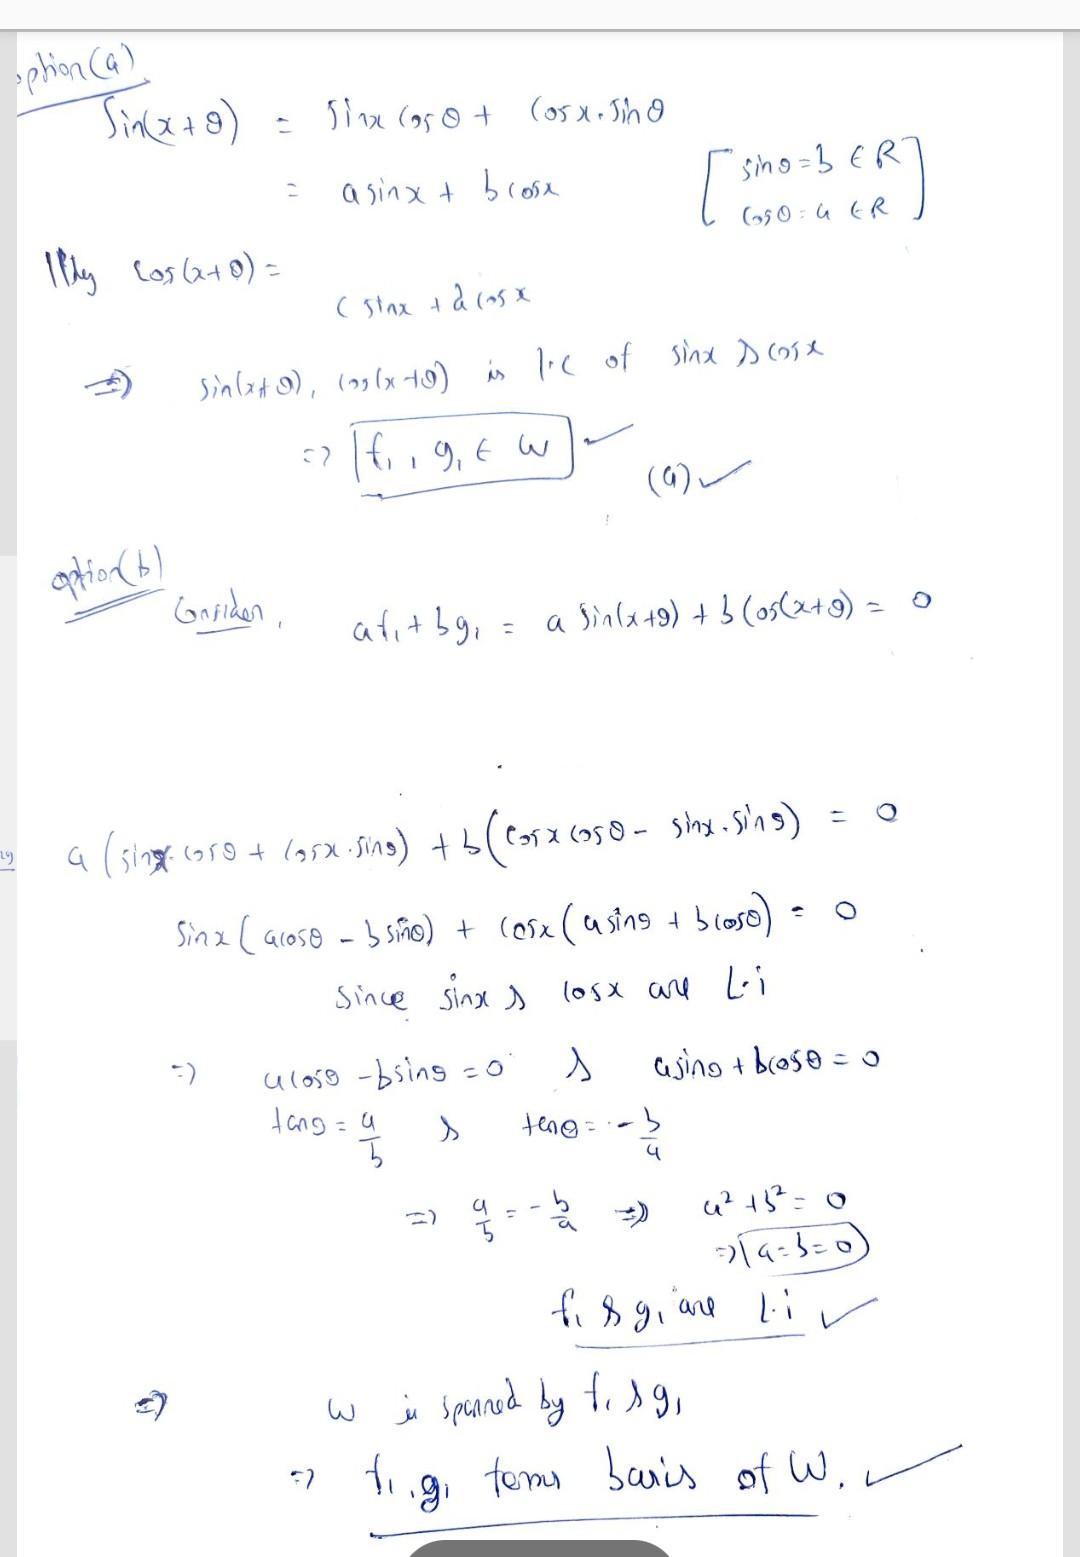 option(a)
Sin(x+θ) = Sinx Cosθ + Cosx.Sinθ
= a sinx + b cosx [sinθ = b ∈ R
Cosθ = a ∈ R]
|||ly Cos(x+θ) =
c sinx + d cosx
⇒ Sin(x+θ), Cos(x+θ) is l.c of sinx & cosx
=> f₁, g₁ ∈ W ✓
(a) ✓
option(b)
Consider, af₁ + bg₁ = a Sin(x+θ) + b Cos(x+θ) = 0
a (sinx.cosθ + cosx.sinθ) + b (Cosx cosθ - sinx.sinθ) = 0
Sinx (acosθ - b sinθ) + Cosx (a sinθ + b cosθ) = 0
Since sinx & cosx are L.i
=> acosθ - bsinθ = 0 & asinθ + bcosθ = 0
tanθ = a/b & tanθ = -b/a
=> a/b = -b/a => a² + b² = 0
=> a = b = 0
f₁ & g₁ are l.i ✓
=> W is spanned by f₁ & g₁
=> f₁, g₁ forms basis of W. ✓